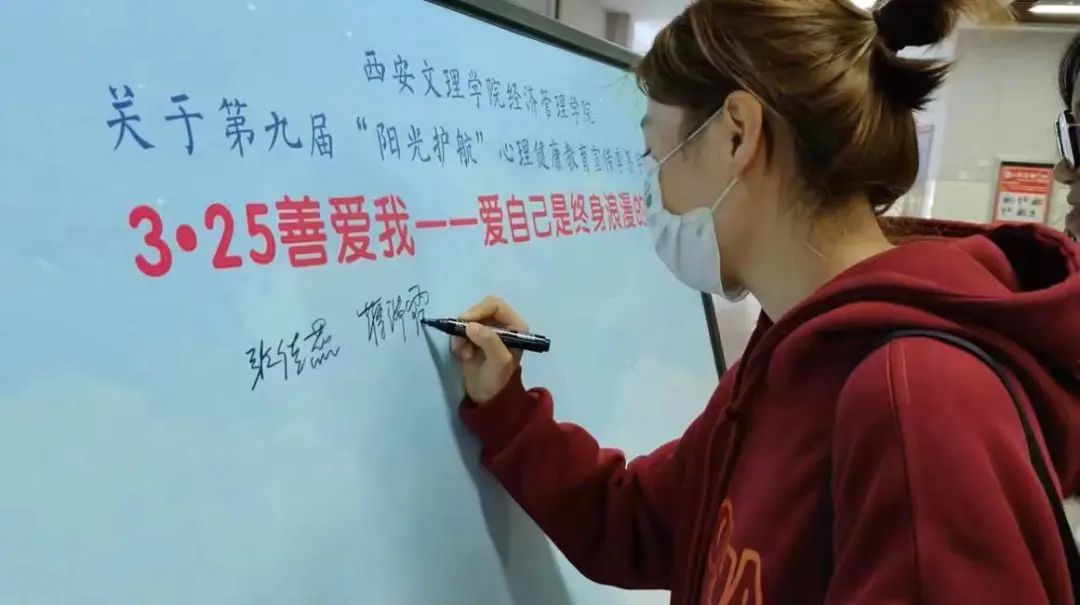 西安文理学院经济管理学院
关于第九届“阳光护航”心理健康教育宣传季签字
3•25善爱我——爱自己是终身浪漫的
张佳蕊